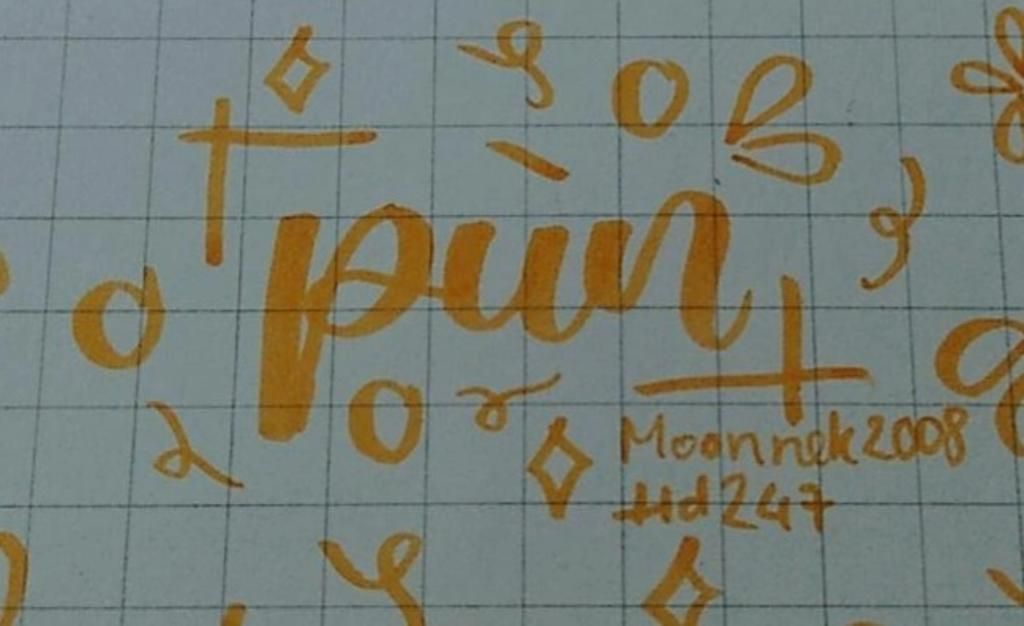 pùn
Moonnek2008
Hd247